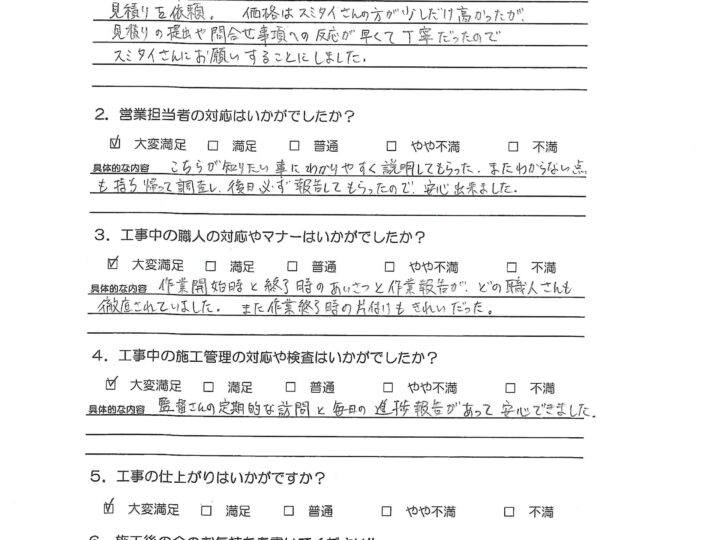 見積りを依頼。 価格はスミタイさんの方が少しだけ高かったが、
見積りの提出や問合せ事項への反応が早くて丁寧だったので
スミタイさんにお願いすることにしました.
2．営業担当者の対応はいかがでしたか？
☑ 大変満足 □ 満足 □ 普通 □ やや不満 □ 不満
具体的な内容 こちらが知りたい事にわかりやすく説明してもらった. またわからない点
も持ち帰って調査し、後日必ず報告してもらったので、安心出来ました.
3．工事中の職人の対応やマナーはいかがでしたか？
☑ 大変満足 □ 満足 □ 普通 □ やや不満 □ 不満
具体的な内容 作業開始時と終了時のあいさつと作業報告が、どの職人さんも
徹底されていました. また作業終了時の片付けもきれいだった。
4．工事中の施工管理の対応や検査はいかがでしたか？
☑ 大変満足 □ 満足 □ 普通 □ やや不満 □ 不満
具体的な内容 監督さんの定期的な訪問と毎日の進捗報告があって安心できました.
5．工事の仕上がりはいかがですか？
☑ 大変満足 □ 満足 □ 普通 □ やや不満 □ 不満